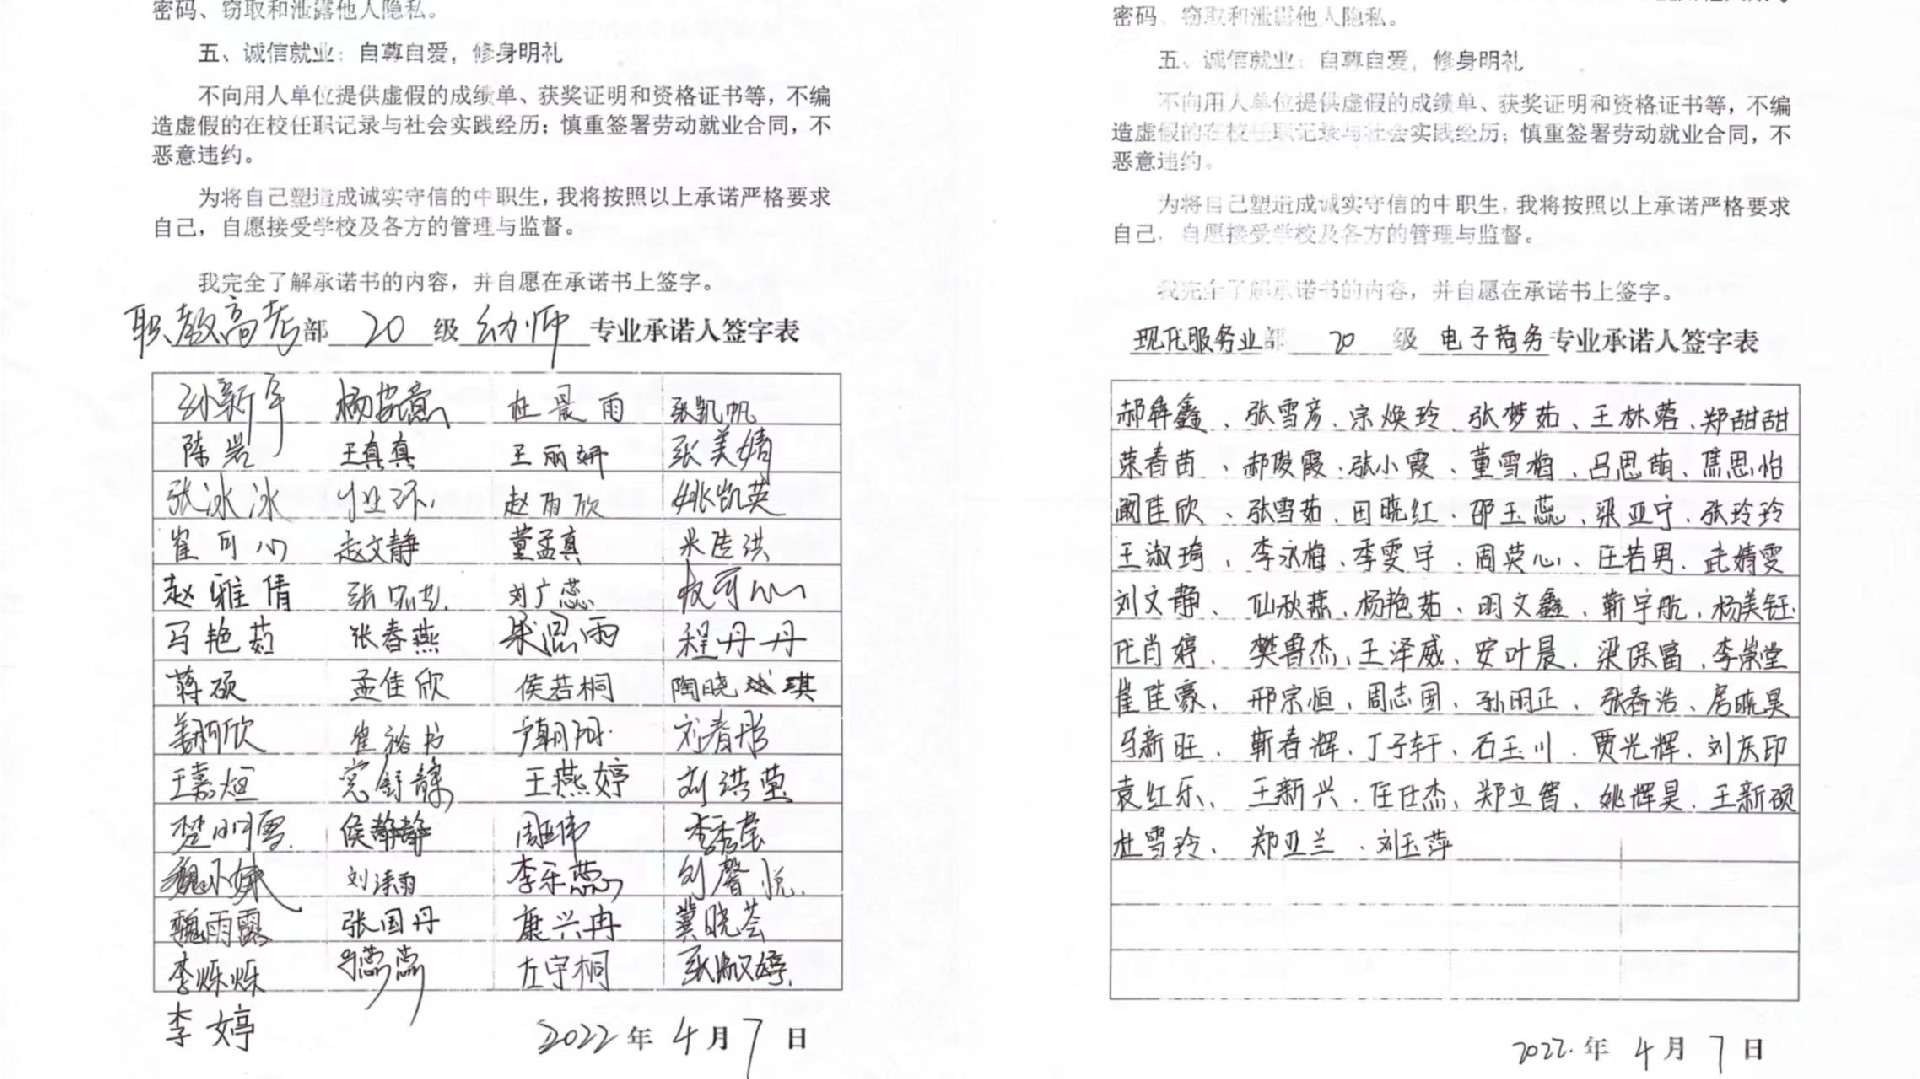 密码、窃取和泄露他人隐私。
五、诚信就业：自尊自爱，修身明礼
不向用人单位提供虚假的成绩单、获奖证明和资格证书等，不编
造虚假的在校任职记录与社会实践经历；慎重签署劳动就业合同，不
恶意违约。
为将自己塑造成诚实守信的中职生，我将按照以上承诺严格要求
自己，自愿接受学校及各方的管理与监督。
我完全了解承诺书的内容，并自愿在承诺书上签字。
职教高考部 20 级 幼师 专业承诺人签字表
孙新军 杜晨雨 张凯帆
陈岩 王真真 王丽妍 张美婧
张冰冰 赵雨欣 姚凯英
崔可心 赵文静 董孟真
赵雅倩 刘广蕊 权可心
马艳茹 张春燕 梁思雨 程丹丹
蒋硕 孟佳欣 侯若桐 陶晓琪
姜珂欣 崔裕书 卢朝阳 刘春彤
王嘉烜 王燕婷 刘洪莹
楚明雪 侯静静 周亚伟 李秀莹
李乐蕊 刘馨悦
魏雨露 张国丹 康兴冉 冀晓荟
李烁烁 左宇桐 张淑婷
李婷
2022年4月7日
密码、窃取和泄露他人隐私。
五、诚信就业：自尊自爱，修身明礼
不向用人单位提供虚假的成绩单、获奖证明和资格证书等，不编
造虚假的在校任职记录与社会实践经历；慎重签署劳动就业合同，不
恶意违约。
为将自己塑造成诚实守信的中职生，我将按照以上承诺严格要求
自己，自愿接受学校及各方的管理与监督。
我完全了解承诺书的内容，并自愿在承诺书上签字。
现代服务业部 20 级 电子商务专业承诺人签字表
郝犇鑫、张雪彦、宗焕玲、张梦茹、王林蓉、郑甜甜
荣春苗、郝俊霞、张小霞、董雪梅、吕思萌、陈思怡
阚佳欣、张雪茹、田晓红、邵玉蕊、梁亚宁、张玲玲
王淑琦、李永梅、李雯宇、周英心、庄若男、武婧雯
刘文静、仙秋燕、杨艳茹、明文鑫、靳宇航、杨美钰
代肖婷、樊鲁杰、王泽威、安叶晨、梁保富、李崇堂
崔佳豪、邢宗恒、周志国、孙明正、张春浩、房晓昊
马新旺、靳春辉、丁子轩、石玉川、贾光辉、刘庆印
袁红乐、王新兴、任仕杰、郑立智、姚辉昊、王新硕
杜雪玲、郑亚兰、刘玉萍
2022.年4月7日